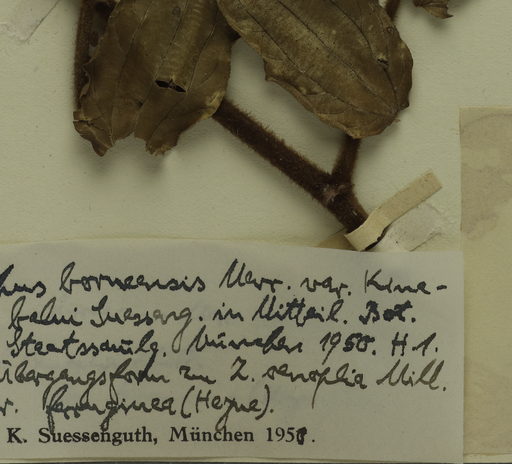 hus borneensis Merr. var. Kina-
balui Suesseng. in Mitteil. Bot.
Staatssamlg. München 1950. H 1.
Übergangsform zu Z. oenoplia Mill.
r. ferruginea (Heyne).
K. Suessenguth, München 1951.